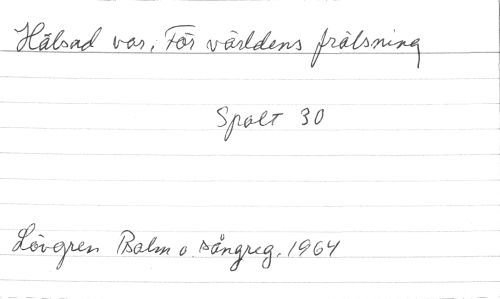 Hälsad var, För världens frälsning
Spalt 30
Lövgren Psalm o. sångreg. 1964